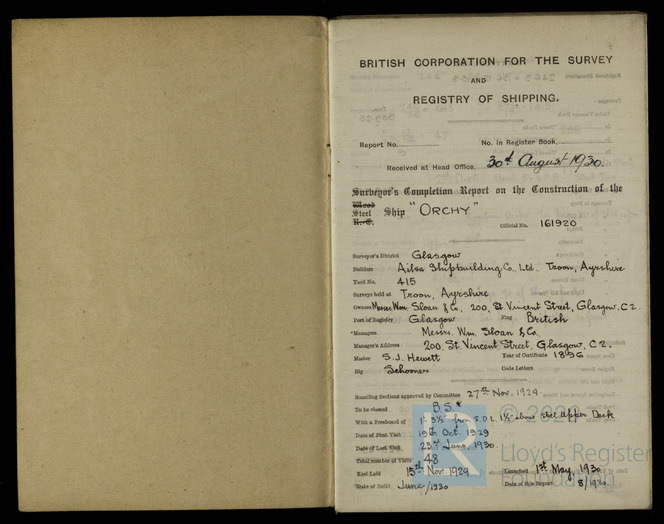 BRITISH CORPORATION FOR THE SURVEY
AND
REGISTRY OF SHIPPING.
Report No. No. in Register Book,
Received at Head Office, 30th August 1930.
Surveyor's Completion Report on the Construction of the
Wood
Steel Ship "ORCHY"
R.C.
Official No. 161920
Surveyor's District Glasgow
Builders Ailsa Shipbuilding Co., Ltd. Troon, Ayrshire
Yard No. 415
Surveys held at Troon, Ayrshire
Owners Messrs Wm. Sloan & Co., 200, St. Vincent Street, Glasgow, C2.
Port of Registry Glasgow Flag British
*Managers Messrs. Wm. Sloan & Co.
Manager's Address 200, St. Vincent Street, Glasgow, C2.
Master S.J. Hewett Year of Certificate 1896
Rig Schooner Code Letters
Scantling Sections approved by Committee 27th Nov. 1929
To be classed B.S.*
With a Freeboard of 1'-3½" from S.D.L 1½" above steel Upper Deck
Date of First Visit Oct. 1929
Date of Last Visit June, 1930.
Total number of Visits 48
Keel Laid 15th Nov. 1929 Launched 1st May, 1930
Date of Build June/1930 Date of this Report 8/1930.
© 202
Lloyd's Register
Foundation